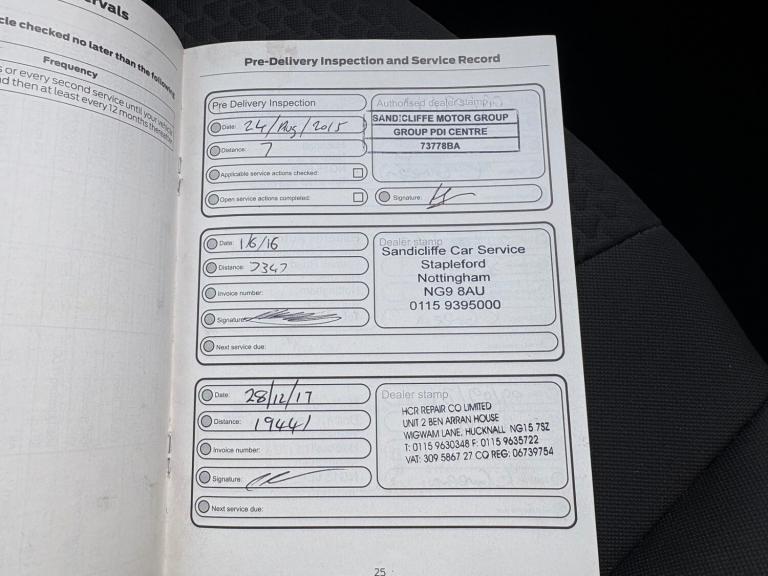 rvals
cle checked no later than the following
Frequency
s or every second service until your vehicle
nd then at least every 12 months thereafter
Pre-Delivery Inspection and Service Record
Pre Delivery Inspection
Authorised dealer stamp
Date: 24/Aug/2015
SANDICLIFFE MOTOR GROUP
GROUP PDI CENTRE
73778BA
Distance: 7
Applicable service actions checked:
Open service actions completed:
Signature:
Date: 1/6/16
Dealer stamp
Sandicliffe Car Service
Stapleford
Nottingham
NG9 8AU
0115 9395000
Distance: 7347
Invoice number:
Signature:
Next service due:
Date: 28/12/17
Dealer stamp
HCR REPAIR CO LIMITED
UNIT 2 BEN ARRAN HOUSE
WIGWAM LANE, HUCKNALL NG15 7SZ
T: 0115 9630348 F: 0115 9635722
VAT: 309 5867 27 CO REG: 06739754
Distance: 19441
Invoice number:
Signature:
Next service due:
25